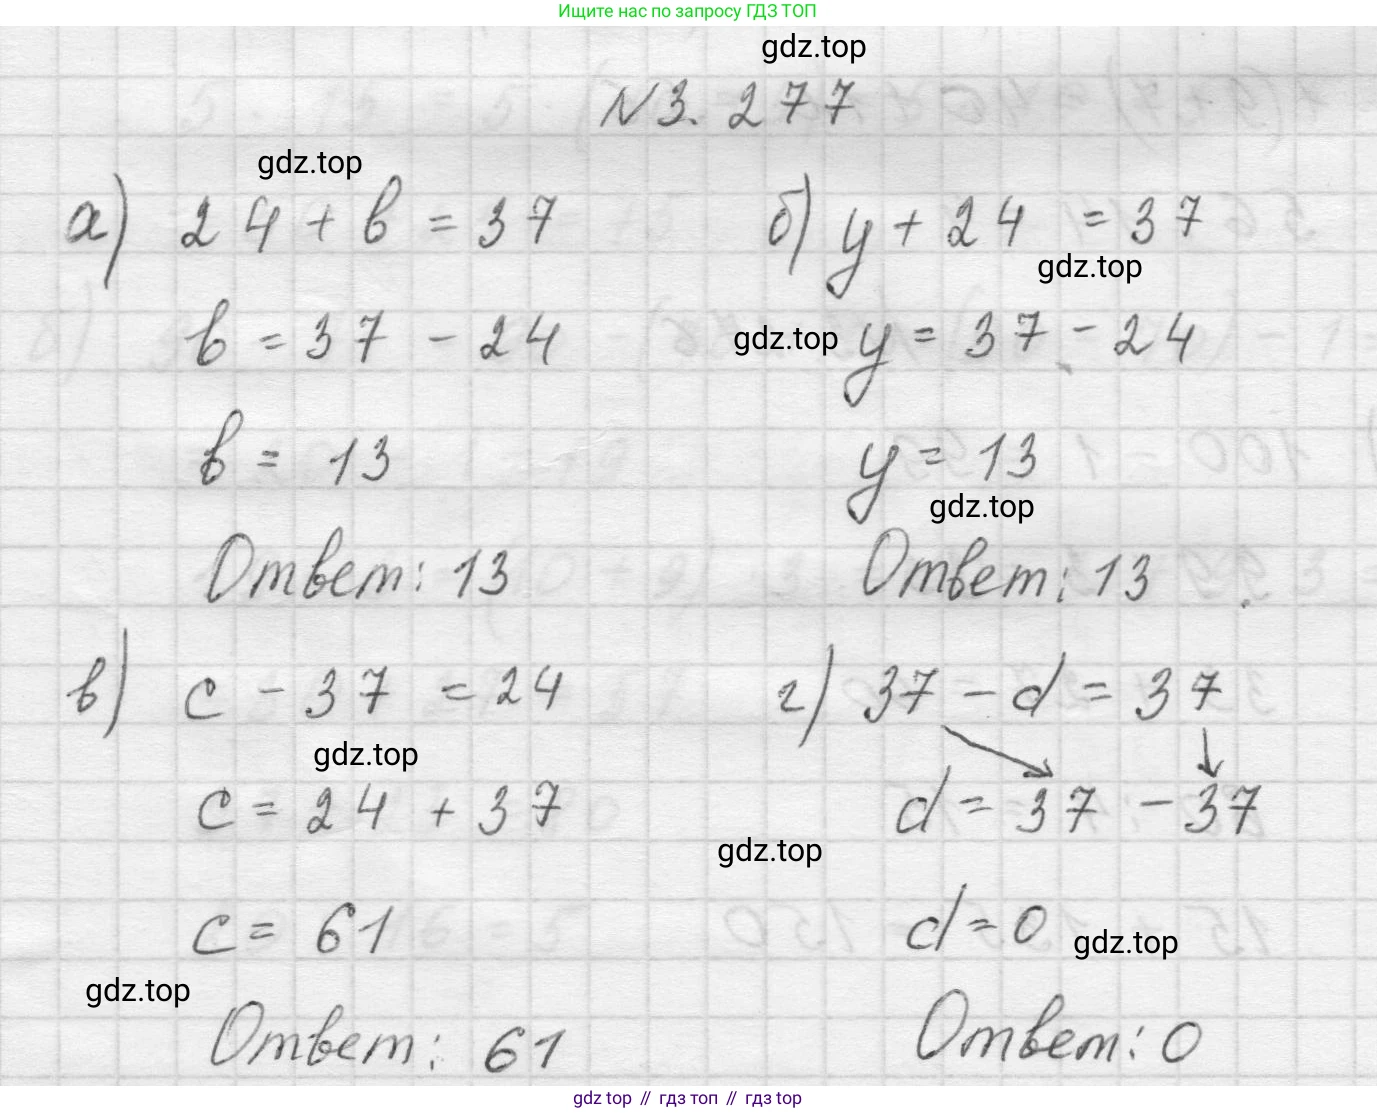 Ищите нас по запросу ГДЗ ТОП
gdz.top
N 3. 277
gdz.top
а) 24 + в = 37
б) у + 24 = 37
gdz.top
в = 37 - 24
gdz.top
у = 37 - 24
в = 13
у = 13
gdz.top
Ответ: 13
Ответ: 13
в) c - 37 = 24
г) 37 - d = 37
gdz.top
c = 24 + 37
d = 37 - 37
gdz.top
c = 61
d = 0
gdz.top
gdz.top
Ответ: 61
Ответ: 0
gdz top // гдз топ // гдз top